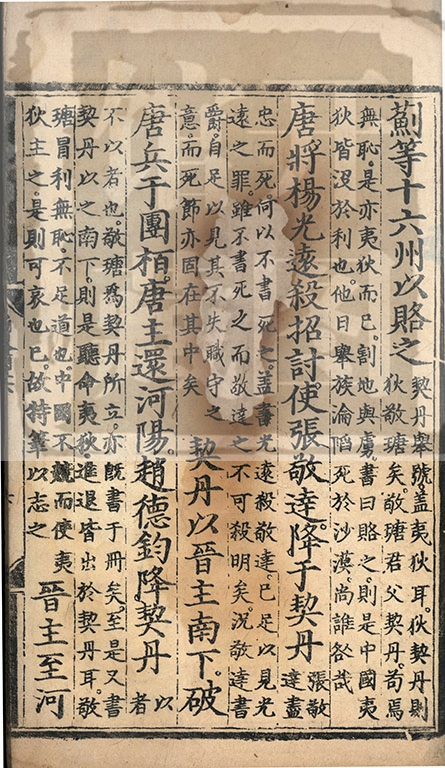 薊等十六州以賂之
契丹舉號蓋夷狄耳。狄契丹則
狄敬瑭矣。敬瑭君父契丹。苟焉
無恥。是亦夷狄而已。割地與虜。書曰賂之。則是中國夷
狄皆沒於利也。他日舉族淪陷。死於沙漠。尚誰咎哉
唐將楊光遠殺招討使張敬達。降于契丹
張敬
達盡
忠而死。何以不書死之。蓋書光遠殺敬達。已足以見光
遠之罪。雖不書死之。而敬達之不可殺明矣。況敬達書
爵。自足以見其不失職守之
意。而死節亦固在其中矣
契丹以晉主南下。破
唐兵于團栢。唐主還河陽。趙德鈞降契丹
以
者
不以者也。敬瑭爲契丹所立。亦既書于冊矣。至是又書
契丹以之南下。則是聽命夷狄。進退皆出於契丹耳。敬
瑭冒利無恥。不足道也。中國不競而使夷
狄主之。是則可哀也已。故特筆以志之
晉主至河